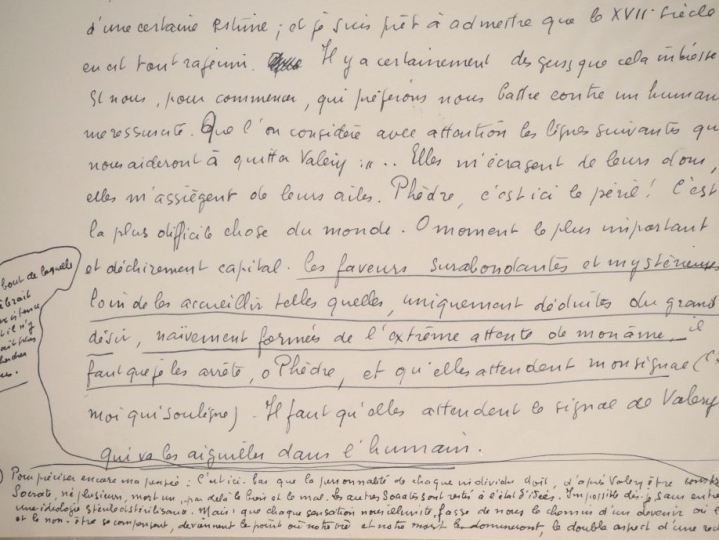 d'une certaine estime ; et je suis prêt à admettre que le XVIIe siècle
en est tout rajeuni. Il y a certainement des gens que cela intéresse
Si nous, pour commencer, qui préférions nous battre contre un human
me ressuscité. Que l'on considère avec attention les lignes suivantes qui
nous aideront à quitter Valéry : ".. Elles m'écrasent de leurs dons,
elles m'assiègent de leurs ailes. Phèdre, c'est ici le péril ! C'est
la plus difficile chose du monde. O moment le plus important
et déchirement capital. Ces faveurs surabondantes et mystérieuses
loin de les accueillir telles quelles, uniquement déduites du grand
désir, naïvement formées de l'extrême attente de mon âme, il
faut que je les arrête, o Phèdre, et qu'elles attendent mon signal (C'e
moi qui souligne). Il faut qu'elles attendent le signal de Valéry
qui va les aiguiller dans l'humain.
bout de laquelle
Pour préciser encore ma pensée : c'est ici. que la personnalité de chaque individu doit, d'après Valéry être
Socrate, né plusieurs, mort un, par delà le bien et le mal. les autres Socrates sont restés à l'état d'idées. sans
une idéologie stérile et stérilisante. Mais : que chaque sensation nous illumine, fasse de nous le chemin d'un devenir où l
et le non-être se composent, deviennent le point où notre vie et notre mort le domineront, le double aspect d'une